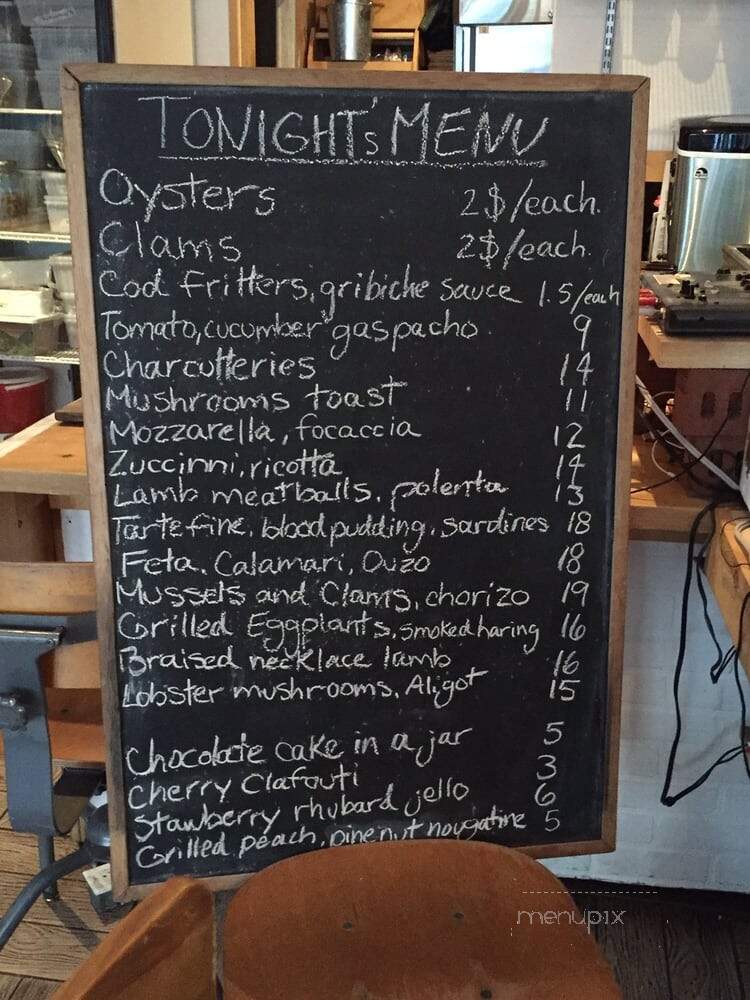 TONIGHT's MENU
Oysters 2$/each.
Clams 2$/each.
Cod fritters, gribiche sauce 1.5/each
Tomato, cucumber gaspacho 9
Charcutteries 14
Mushrooms toast 11
Mozzarella, focaccia 12
Zuccinni, ricotta 14
Lamb meatballs, polenta 13
Tarte fine, blood pudding, sardines 18
Feta, Calamari, Ouzo 18
Mussels and Clams, chorizo 19
Grilled Eggplants, smoked haring 16
Braised necklace lamb 16
Lobster mushrooms, Aligot 15
Chocolate cake in a jar 5
Cherry Clafouti 3
Stawberry rhubard jello 6
Grilled peach, pine nut nougatine 5
menupix